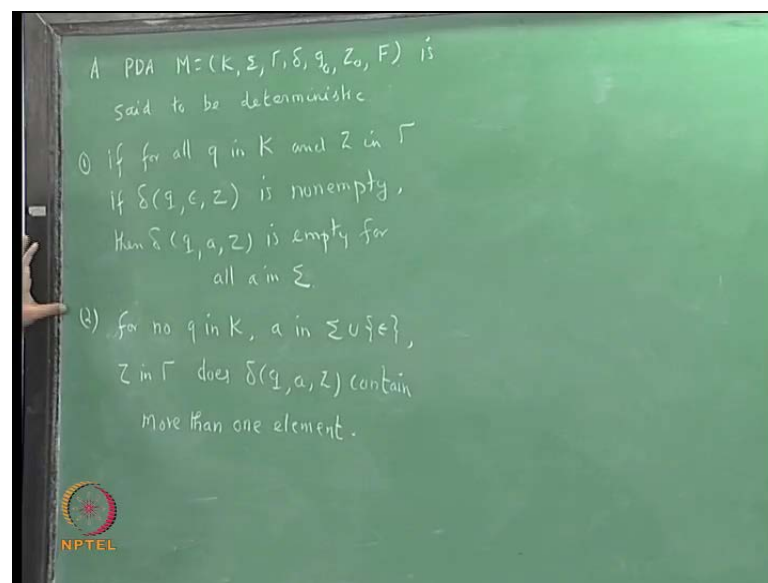 A PDA M=(K, Σ, Γ, δ, q₀, Z₀, F) is
said to be deterministic
① if for all q in K and Z in Γ
if δ(q, ε, Z) is nonempty,
then δ(q, a, Z) is empty for
all a in Σ
(2) for no q in K, a in Σ ∪ {ε},
Z in Γ does δ(q, a, Z) contain
more than one element.
NPTEL